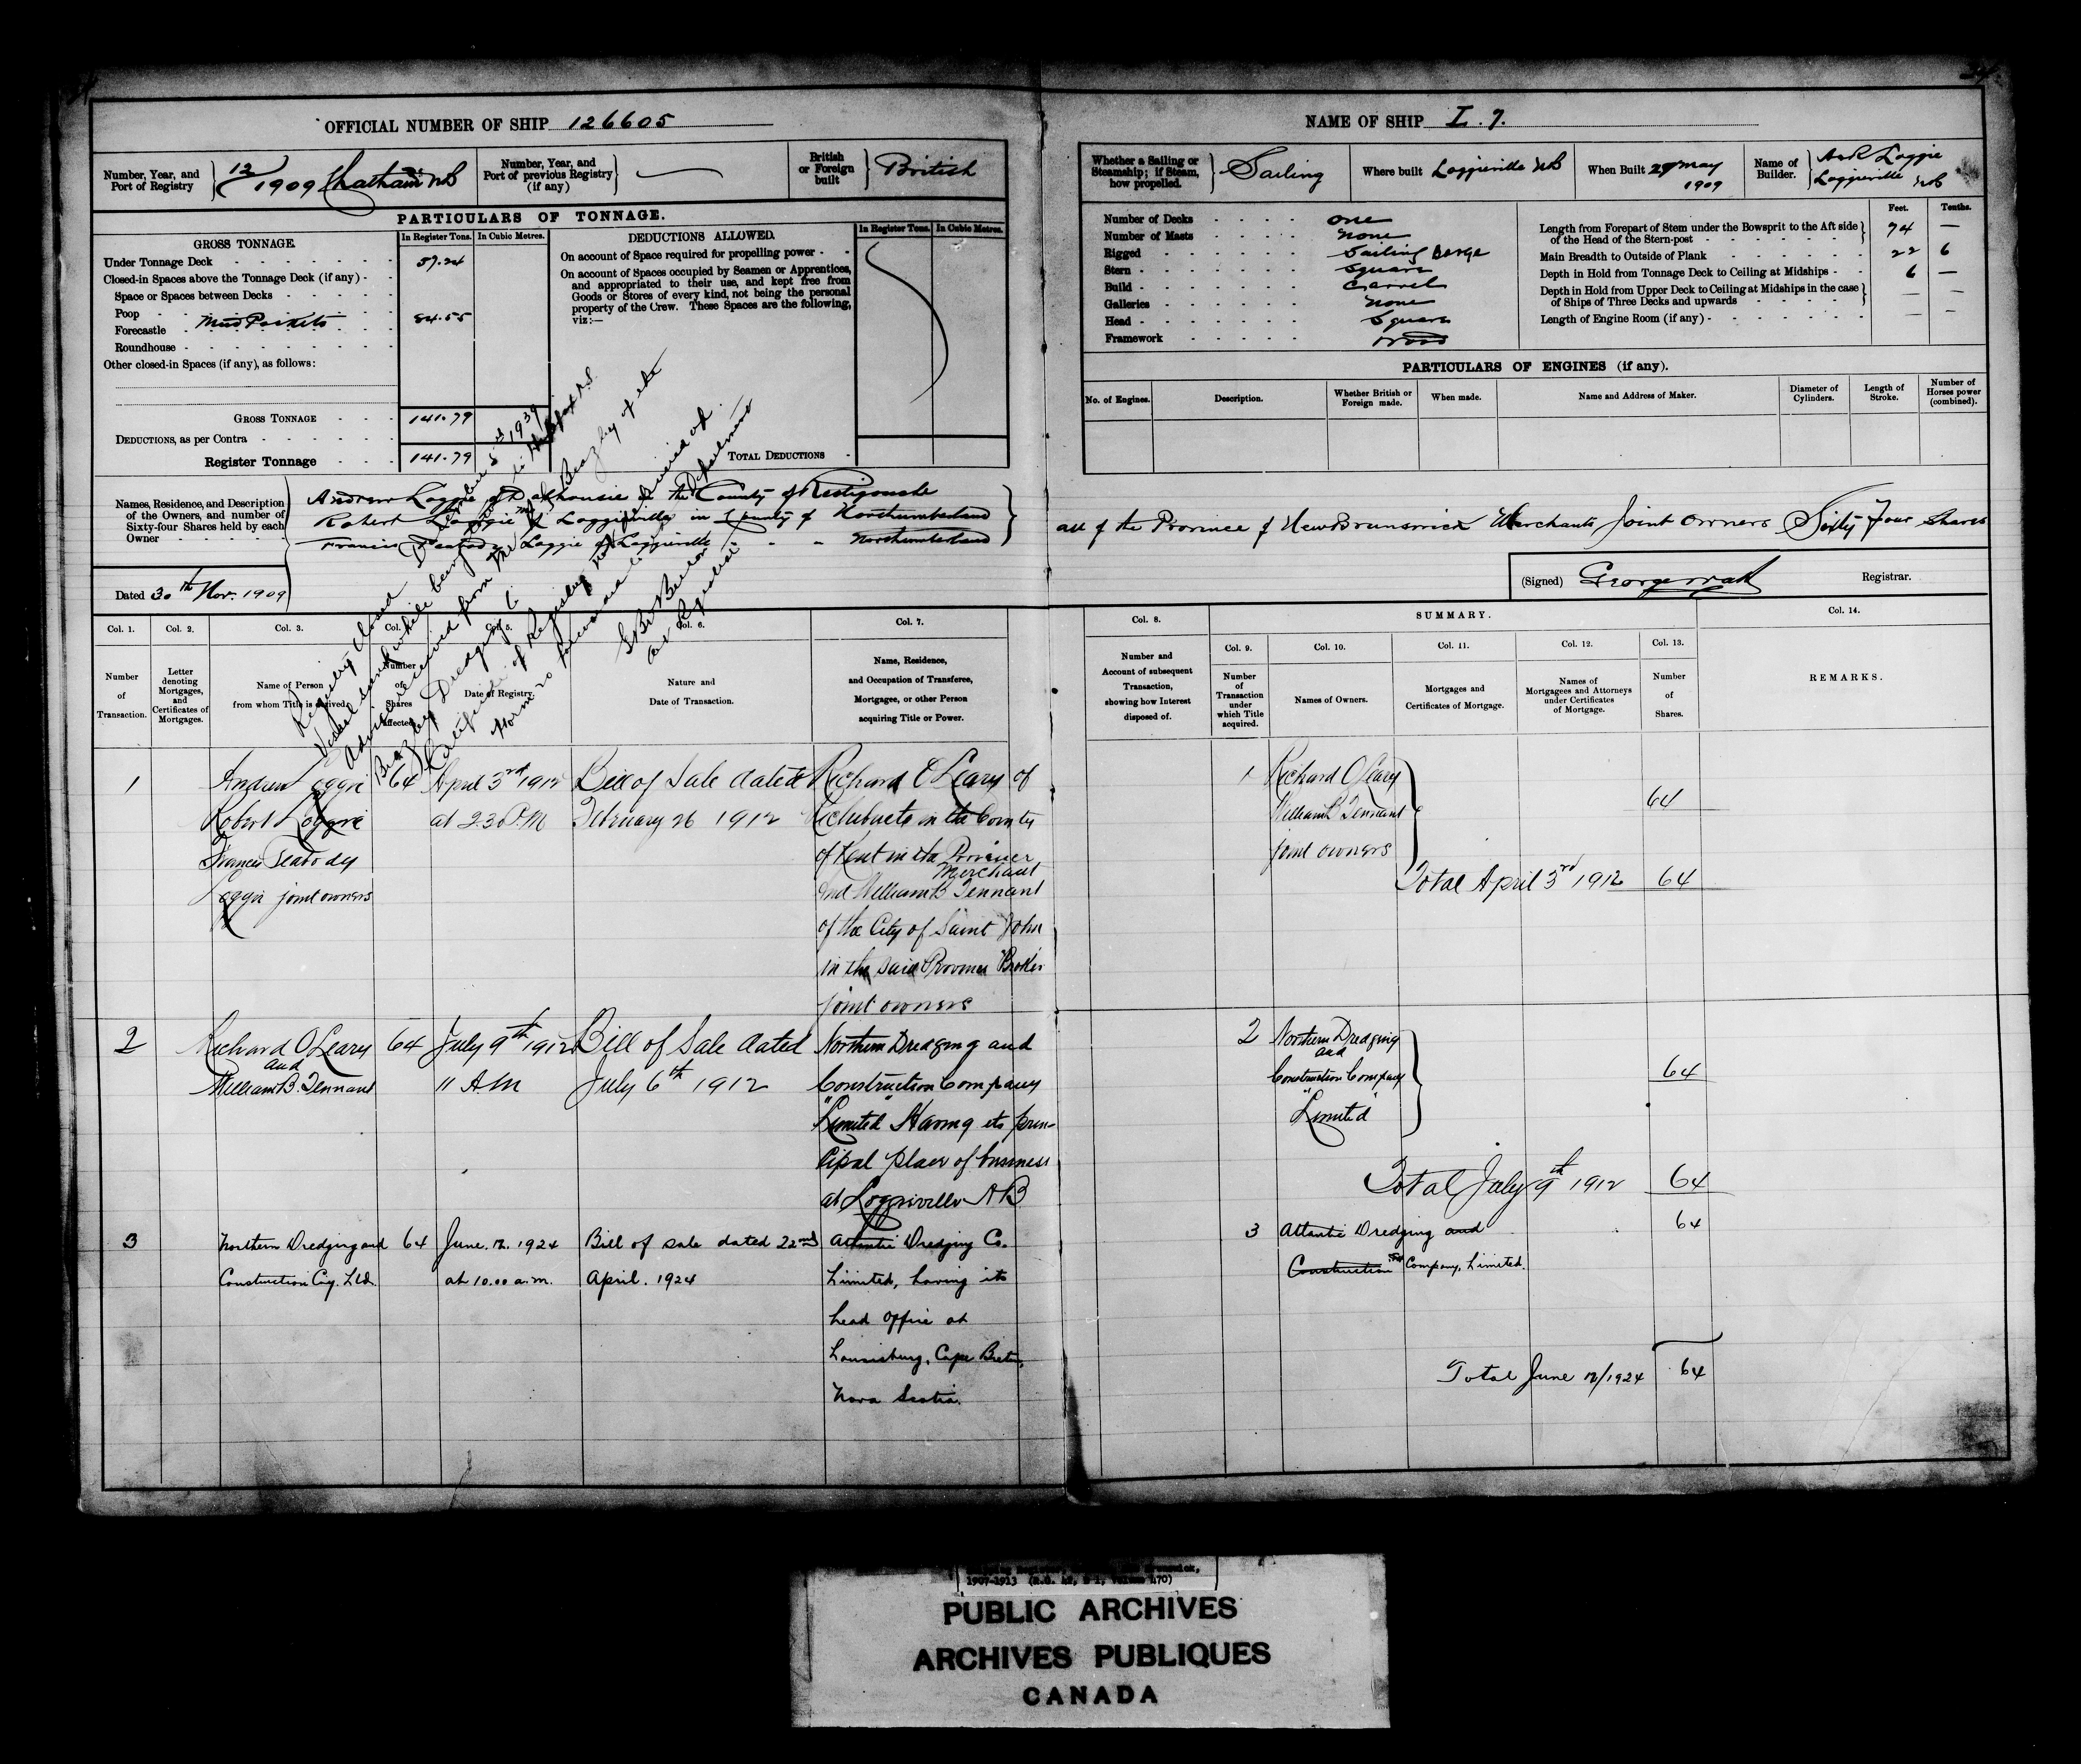 OFFICIAL NUMBER OF SHIP 126605
NAME OF SHIP L. 7.
Number, Year, and Port of Registry 12/1909 Chatham NB
Number, Year, and Port of previous Registry (if any)
British or Foreign built British
Whether a Sailing or Steamship; if Steam, how propelled. Sailing
Where built Loggieville NB
When Built 29 May 1909
Name of Builder. A & R Loggie Loggieville NB
PARTICULARS OF TONNAGE.
GROSS TONNAGE.
In Register Tons.
In Cubic Metres.
Under Tonnage Deck 57.24
Closed-in Spaces above the Tonnage Deck (if any)
Space or Spaces between Decks
Poop
Forecastle Mud Pockets 84.55
Roundhouse
Other closed-in Spaces (if any), as follows:
GROSS TONNAGE 141.79
DEDUCTIONS, as per Contra
Register Tonnage 141.79
DEDUCTIONS ALLOWED.
In Register Tons.
In Cubic Metres.
On account of Space required for propelling power
On account of Spaces occupied by Seamen or Apprentices,
and appropriated to their use, and kept free from
Goods or Stores of every kind, not being the personal
property of the Crew. These Spaces are the following,
viz:—
TOTAL DEDUCTIONS
Number of Decks one
Number of Masts none
Rigged Sailing Barge
Stern Square
Build Carvel
Galleries none
Head Square
Framework Wood
Feet. Tenths.
Length from Forepart of Stem under the Bowsprit to the Aft side of the Head of the Stern-post 74 —
Main Breadth to Outside of Plank 22 6
Depth in Hold from Tonnage Deck to Ceiling at Midships 6 —
Depth in Hold from Upper Deck to Ceiling at Midships in the case of Ships of Three Decks and upwards — —
Length of Engine Room (if any) — —
PARTICULARS OF ENGINES (if any).
No. of Engines.
Description.
Whether British or Foreign made.
When made.
Name and Address of Maker.
Diameter of Cylinders.
Length of Stroke.
Number of Horses power (combined).
Names, Residence, and Description of the Owners, and number of Sixty-four Shares held by each Owner
Andrew Loggie of Dalhousie in the County of Restigouche
Robert Loggie of Loggieville in County of Northumberland
Francis Peabody Loggie of Loggieville " " Northumberland
all of the Province of New Brunswick Merchants Joint Owners Sixty Four Shares
Dated 30th Nov. 1909
(Signed) George Watt Registrar.
Registry closed December 5th 1939
Vessel sank while being towed to Halifax N.S.
Advice received from Mr. Beazley of the
Beazley Dredging Co
Certificate of Registry
Form 20 forwarded to Department
Registrar
Col. 1. Number of Transaction.
Col. 2. Letter denoting Mortgages, and Certificates of Mortgages.
Col. 3. Name of Person from whom Title is derived.
Col. 4. Number of Shares affected.
Col. 5. Date of Registry.
Col. 6. Nature and Date of Transaction.
Col. 7. Name, Residence, and Occupation of Transferee, Mortgagee, or other Person acquiring Title or Power.
Col. 8. Number and Account of subsequent Transaction, showing how Interest disposed of.
SUMMARY.
Col. 9. Number of Transaction under which Title acquired.
Col. 10. Names of Owners.
Col. 11. Mortgages and Certificates of Mortgage.
Col. 12. Names of Mortgagees and Attorneys under Certificates of Mortgage.
Col. 13. Number of Shares.
Col. 14. REMARKS.
1
Andrew Loggie
Robert Loggie
Francis Peabody
Loggie joint owners
64
April 3rd 1912
at 2.30 P.M
Bill of Sale dated
February 26 1912
Richard O'Leary of
Richibucto in the County
of Kent in the Province
Merchant
and William B Tennant
of the City of Saint John
in the said Province Broker
joint owners
1 Richard O'Leary
William B Tennant
joint owners
64
Total April 3rd 1912 64
2
Richard O'Leary
and
William B. Tennant
64
July 9th 1912
11 A.M
Bill of Sale dated
July 6th 1912
Northern Dredging and
Construction Company
"Limited" Having its prin-
cipal place of business
at Loggieville N B
2 Northern Dredging
and
Construction Company
"Limited"
64
Total July 9th 1912 64
3
Northern Dredging and
Construction Coy. Ltd.
64
June. 12. 1924
at 10.00 a.m.
Bill of sale dated 22nd
April. 1924
Atlantic Dredging Co.
Limited, having its
head office at
Louisburg, Cape Breton,
Nova Scotia.
3 Atlantic Dredging and
Construction Company, Limited.
64
Total June 12/1924 64
1907-1913
PUBLIC ARCHIVES
ARCHIVES PUBLIQUES
CANADA